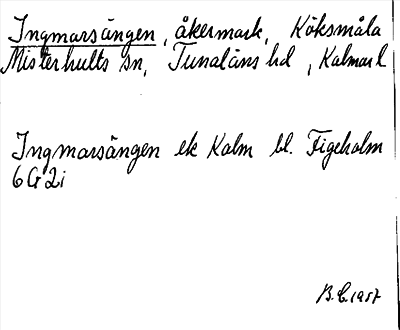 Ingmarsängen, åkermark, Köksmåla
Misterhults sn, Tunaläns hd, Kalmar l
Ingmarsängen ek Kalm bl. Figeholm
6G2i
B.C. 1957